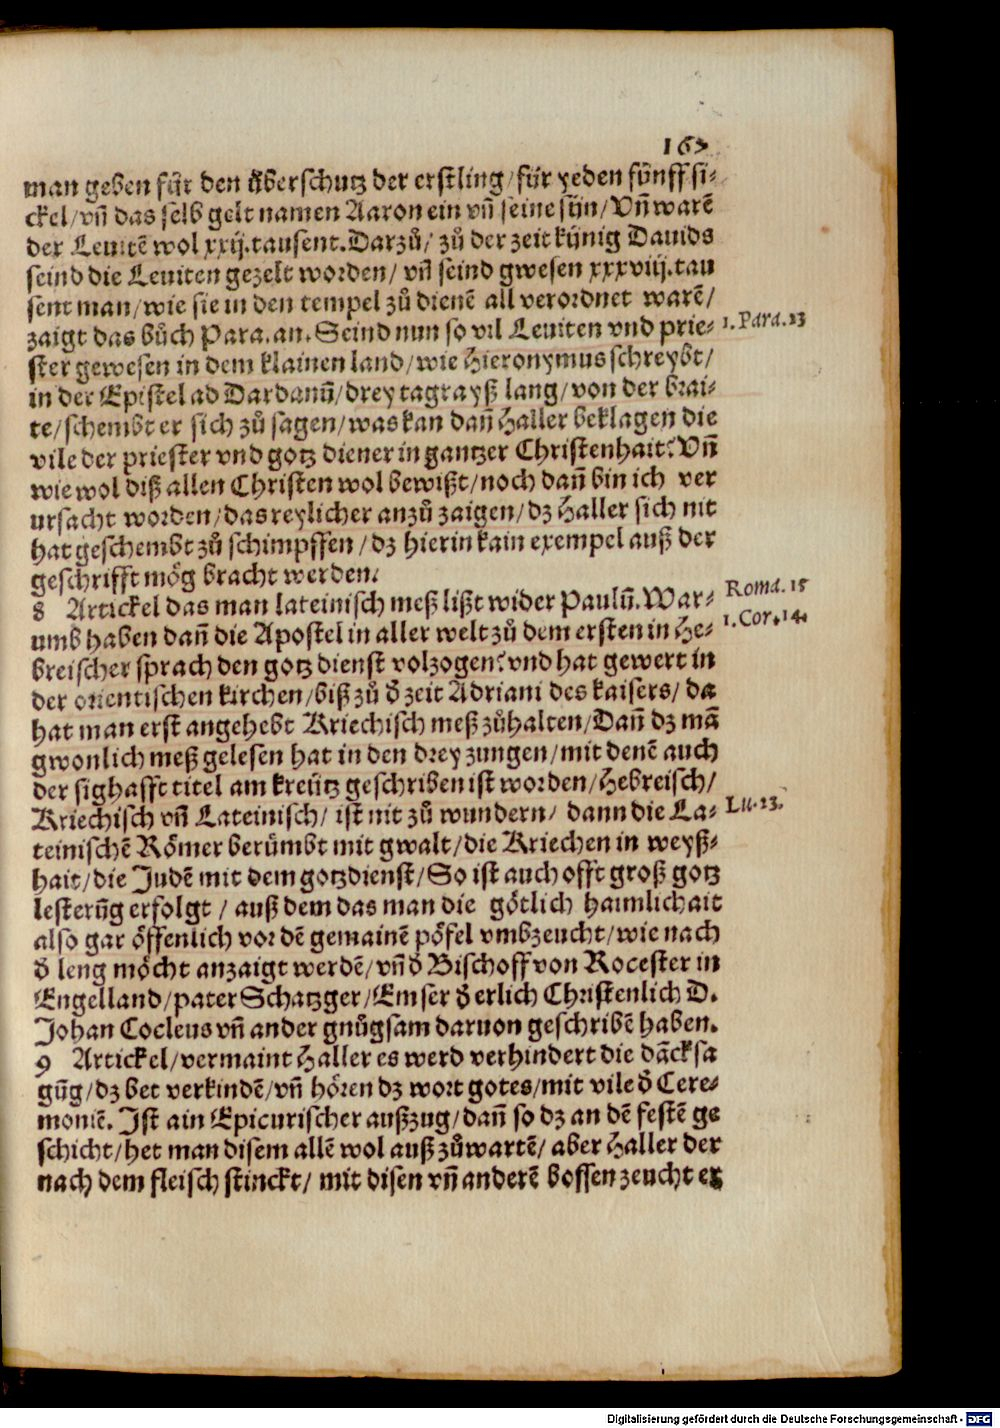 167
man geben für den überschutz der erstling/für yeden fünff si-
ckel/vñ das selb gelt namen Aaron ein vñ seine sün/Vñ warẽ
der Leuitẽ wol xxij.tausent.Darzů/zů der zeit künig Dauids
seind die Leuiten gezelt worden/vñ seind gwesen xxxviij.tau
sent man/wie sie in den tempel zů dienẽ all verordnet warẽ/
zaigt das bůch Para.an.Seind nun so vil Leuiten vnd prie- 1.Para.23
ster gewesen in dem klainen land/wie Hieronymus schreybt/
in der Epistel ad Dardanũ/drey tagrayß lang/von der brai-
te/schembt er sich zů sagen/was kan dañ Haller beklagen die
vile der priester vnd gotz diener in gantzer Christenhait? Vñ
wie wol diß allen Christen wol bewißt/noch dañ bin ich ver
ursacht worden/das reylicher anzů zaigen/dz Haller sich nit
hat geschembt zů schimpffen/dz hierin kain exempel auß der
geschrifft mög bracht werden.
8 Artickel das man lateinisch meß lißt wider Paulũ.War- Roma.15
umb haben dañ die Apostel in aller welt zů dem ersten in He- 1.Cor.14.
breischer sprach den gotz dienst volzogen? vnd hat gewert in
der orientischen kirchen/biß zů d̕ zeit Adriani des kaisers/da
hat man erst angehebt Kriechisch meß zůhalten/Dañ dz mã
gwonlich meß gelesen hat in den drey zungen/mit denẽ auch
der sighafft titel am kreütz geschriben ist worden/Hebreisch/
Kriechisch vñ Lateinisch/ist nit zů wundern/dann die La- Lu.23.
teinischẽ Römer berümbt mit gwalt/die Kriechen in weyß-
hait/die Judẽ mit dem gotzdienst/So ist auch offt groß gotz
lesterũg erfolgt/auß dem das man die götlich haimlichait
also gar öffenlich vor dẽ gemainẽ pöfel vmbzeucht/wie nach
d̕ leng möcht anzaigt werdẽ/vñ d̕ Bischoff von Rocester in
Engelland/pater Schatzger/Emser d̕ erlich Christenlich D.
Johan Cocleus vñ ander gnůgsam daruon geschribẽ haben.
9 Artickel/vermaint Haller es werd verhindert die dãcksa
gũg/dz bet verkindẽ/vñ hören dz wort gotes/mit vile d̕ Cere-
moniẽ.Ist ain Epicurischer außzug/dañ so dz an dẽ festẽ ge
schicht/het man disem allẽ wol auß zůwartẽ/aber Haller der
nach dem fleisch stinckt/mit disen vñ anderẽ bossen zeucht er
Digitalisierung gefördert durch die Deutsche Forschungsgemeinschaft - DFG